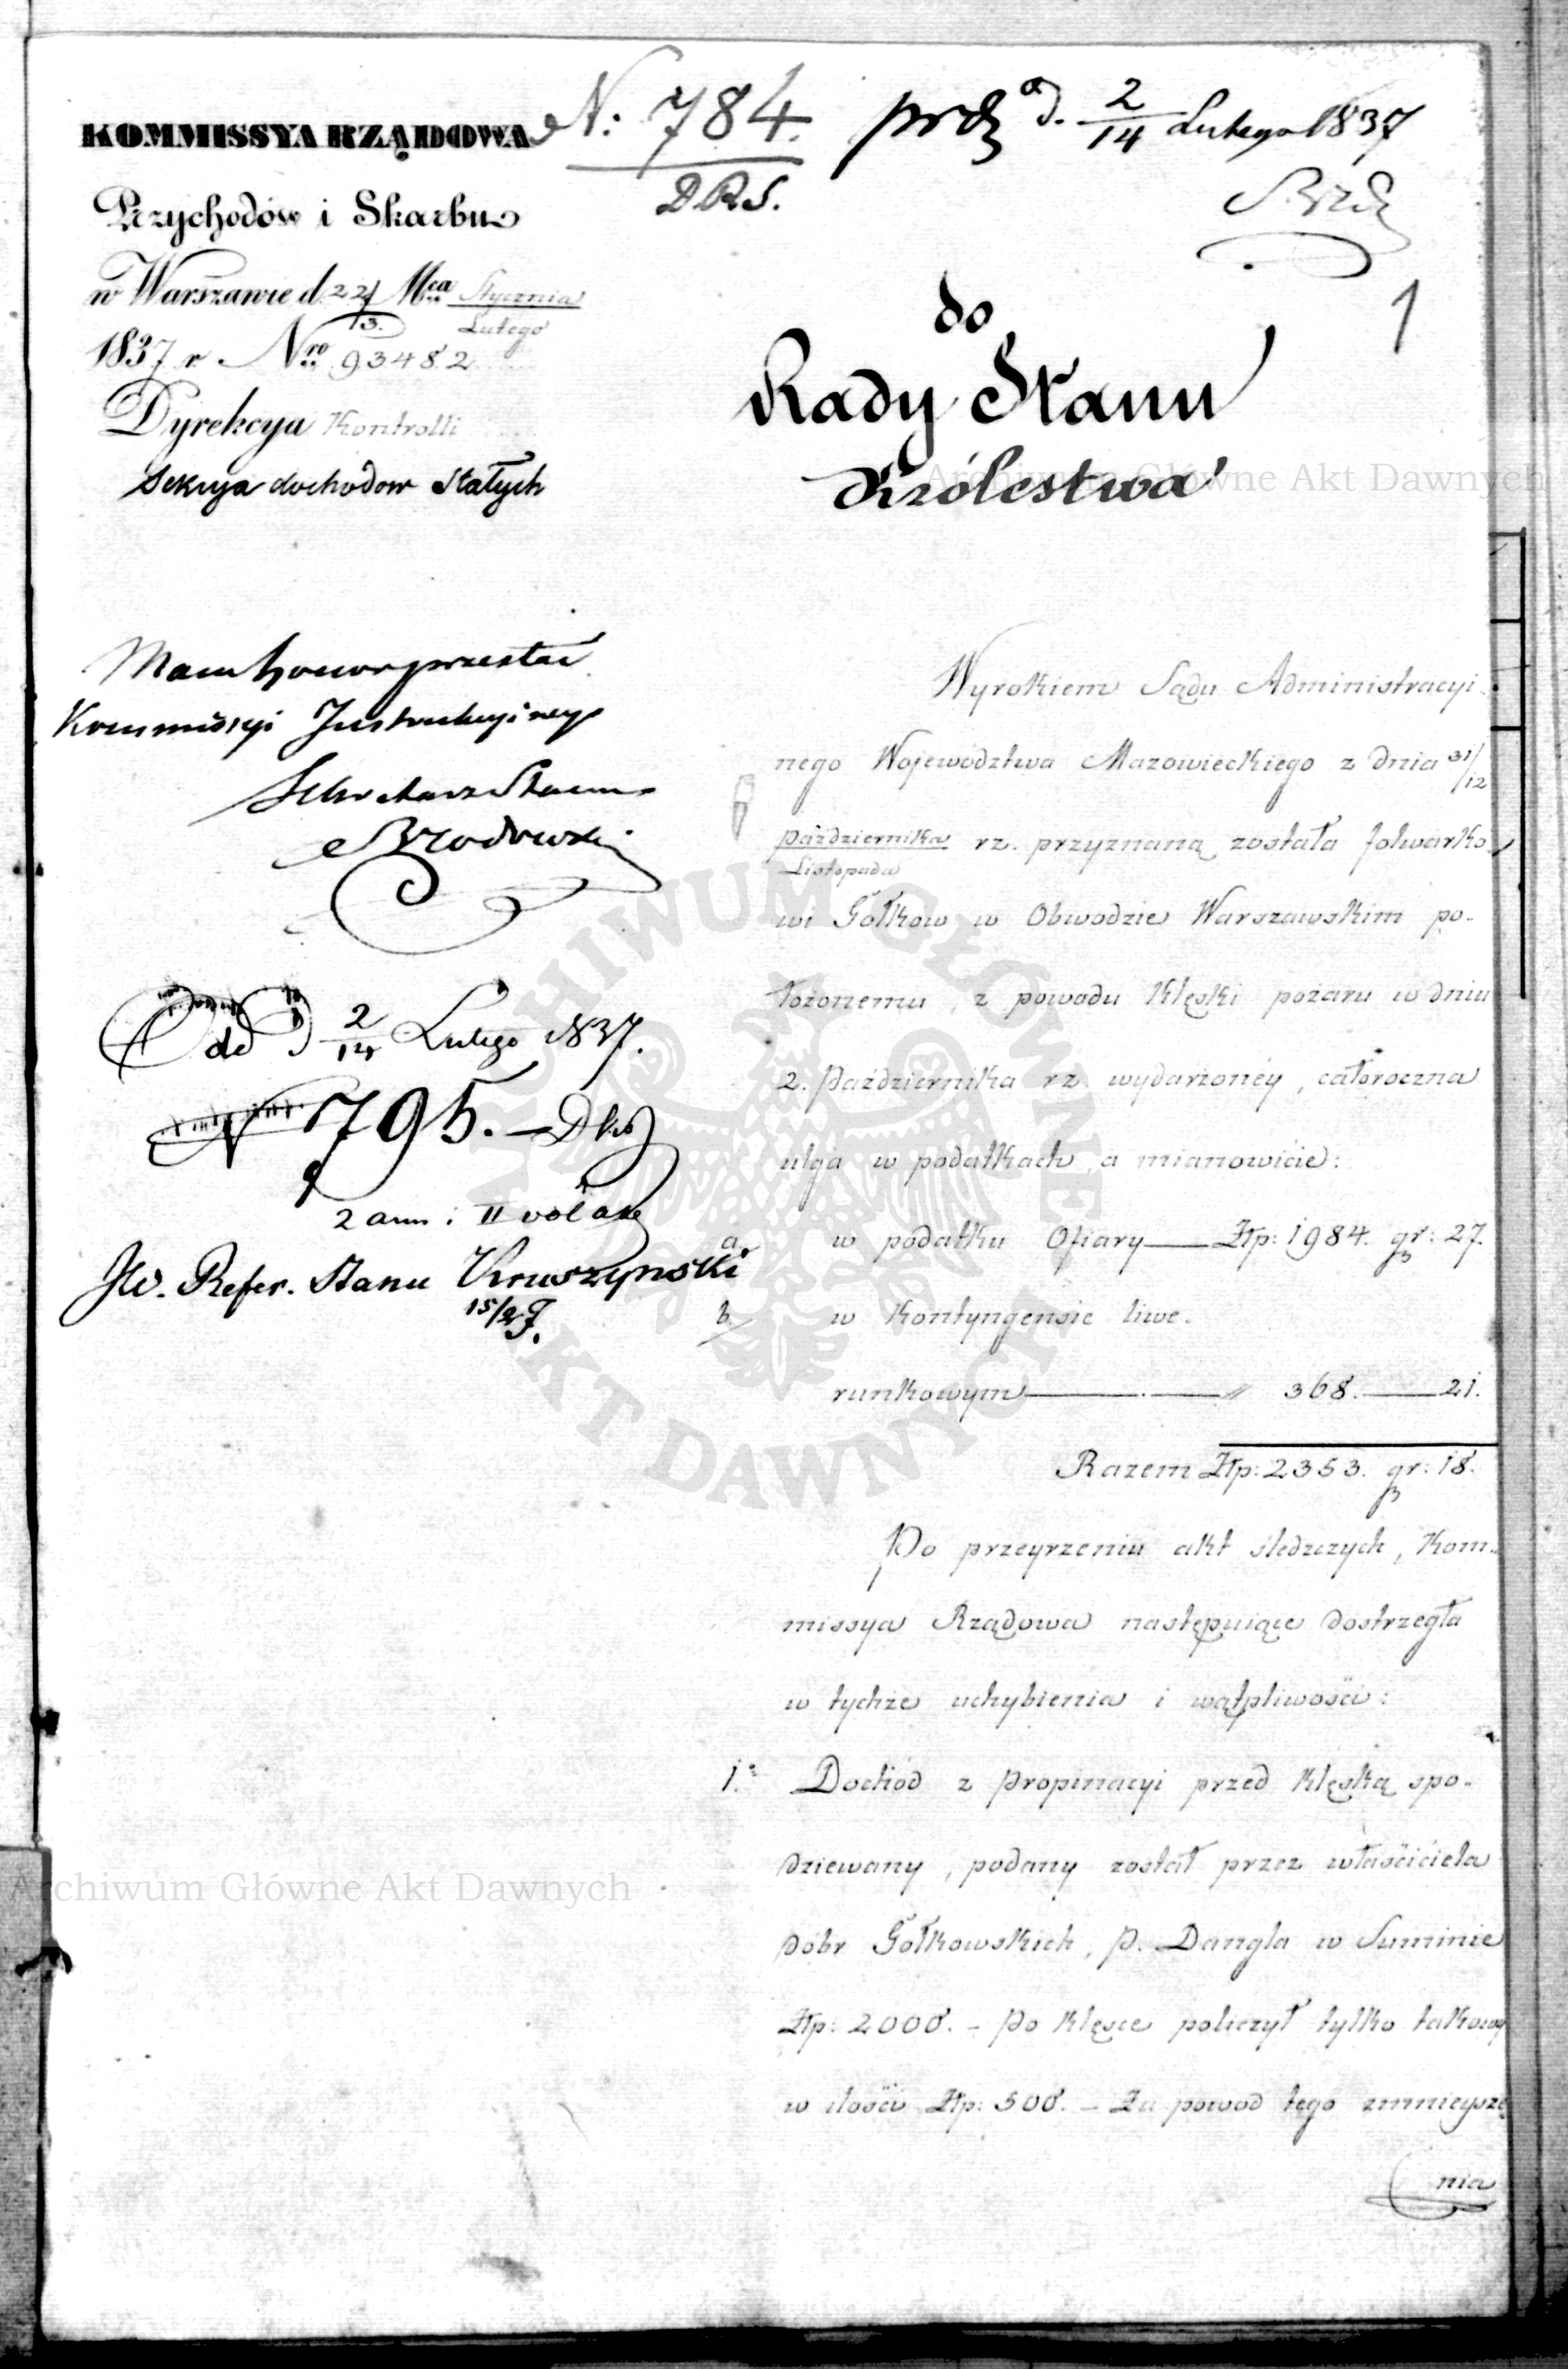 N: 784. prdz d. 2/14 Lutego 1837
DRS.
KOMMISSYA RZĄDOWA
Przychodów i Skarbu
w Warszawie d. 22/3. Mca Stycznia/Lutego
1837 r. Nro 93482
Dyrekcya Kontrolli
Sekcya dochodow Stałych
1
do
Rady Stanu
Królestwa
Mam honor przesłać
Kommissyi Instrukcyjney
Sekretarz Stanu
Brodowski
de d 2/14 Lutego 1837.
N 795.
2 ann: II vol akt
JW. Refer. Stanu Kruszyński
15/2
Wyrokiem Sądu Administracyi-
nego Województwa Mazowieckiego z dnia 31/12
Października/Listopada rz. przyznaną została folwarko-
wi Gołkow w Obwodzie Warszawskim po-
łożonemu, z powodu klęski pożaru w dniu
2. Października rz. wydarzoney, całoroczna
ulga w podatkach, a mianowicie:
a/ w podatku Ofiary — Złp: 1984. gr: 27.
b/ w Kontyngensie liwe-
runkowym — " 368. — 21.
Razem Złp: 2353. gr: 18.
Po przeyrzeniu akt śledczych, Kom-
missya Rządowa następuiące dostrzegła
w tychże uchybienia i wątpliwości:
1.° Dochód z Propinacyi przed klęską spo-
dziewany, podany został przez właściciela
dóbr Gołkowskich, P. Dangla w Summie
Złp: 2000. - Po klęsce policzył tylko takowy
w ilości Złp: 500. - Za powod tego zmnieysze
nia
Archiwum Główne Akt Dawnych
ARCHIWUM GŁÓWNE AKT DAWNYCH
Archiwum Główne Akt Dawnych